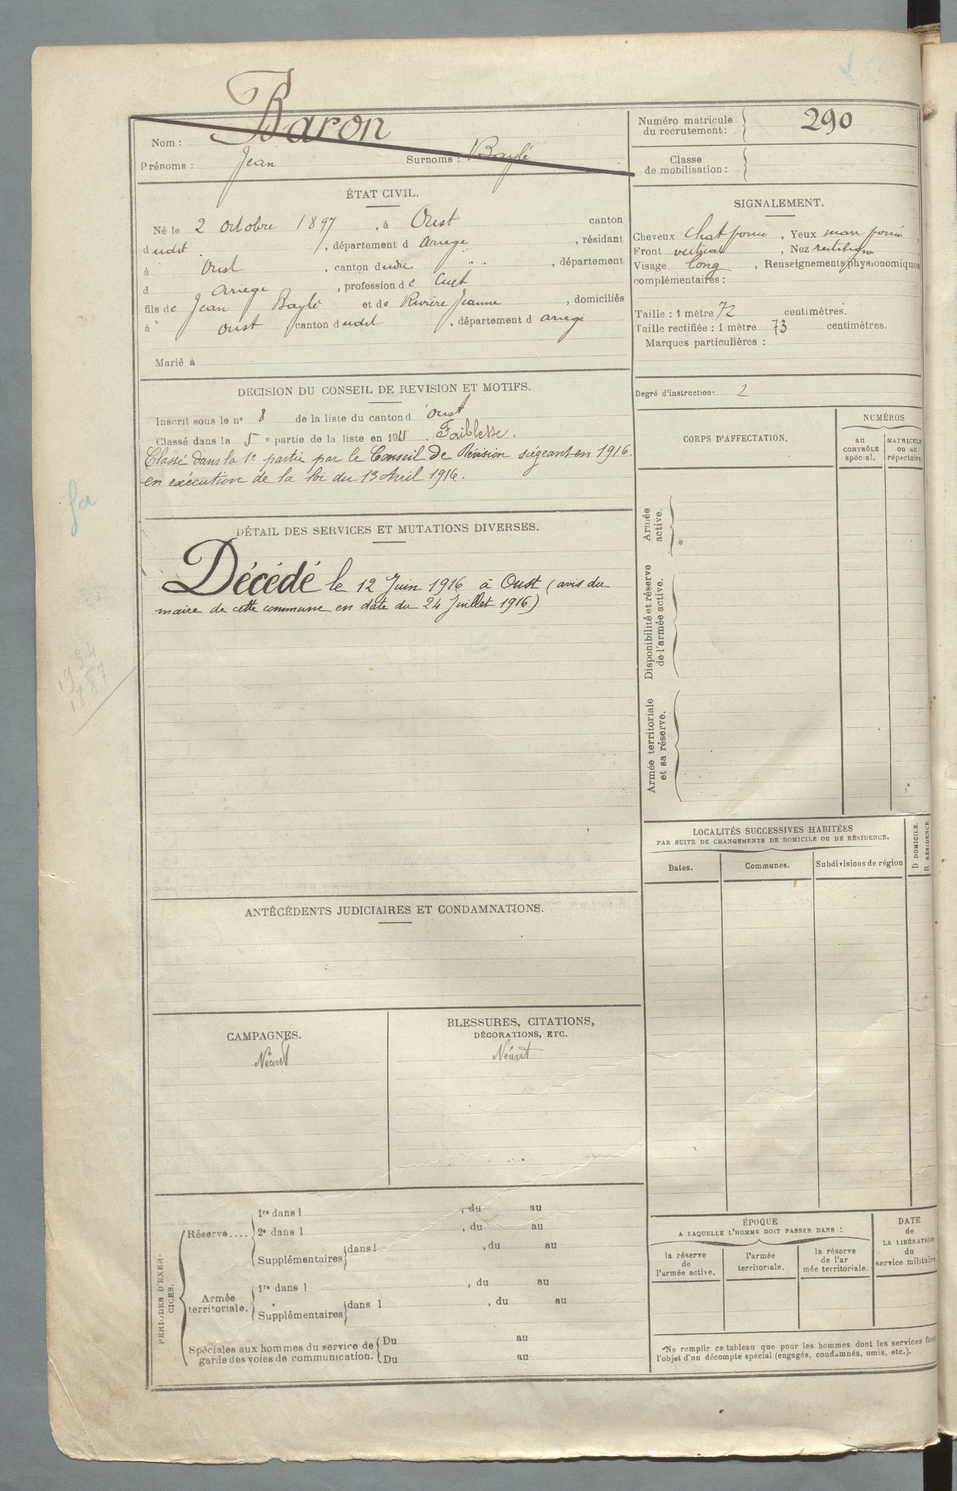 Nom : Baron
Prénoms : Jean Surnoms : Baylé
Numéro matricule du recrutement : 290
Classe de mobilisation :
ÉTAT CIVIL.
Né le 2 octobre 1897, à Oust canton
dudit, département d Ariège, résidant
à Oust, canton dudit, département
d Ariège, profession de Cult
fils de Jean Baylé et de Rivière Jeanne, domiciliés
à Oust canton dudit, département d Ariège
Marié à
SIGNALEMENT.
Cheveux chat foncé, Yeux marr foncé
Front vertical, Nez rectiligne
Visage long, Renseignements physionomiques
complémentaires :
Taille : 1 mètre 72 centimètres.
Taille rectifiée : 1 mètre 73 centimètres.
Marques particulières :
Degré d'instruction : 2
DÉCISION DU CONSEIL DE RÉVISION ET MOTIFS.
Inscrit sous le nº 8 de la liste du canton d Oust
Classé dans la 5e partie de la liste en 1915. Faiblesse.
Classé dans la 1e partie par le Conseil de Révision siégeant en 1916.
en exécution de la loi du 13 Avril 1916.
DÉTAIL DES SERVICES ET MUTATIONS DIVERSES.
Décédé le 12 Juin 1916 à Oust (avis du
maire de cette commune en date du 24 Juillet 1916)
CORPS D'AFFECTATION.
NUMÉROS
AU CONTRÔLE spécial.
MATRICULE OU AU répertoire
Armée active.
Disponibilité et réserve de l'armée active.
Armée territoriale et sa réserve.
1934
1887
LOCALITÉS SUCCESSIVES HABITÉES
PAR SUITE DE CHANGEMENTS DE DOMICILE OU DE RÉSIDENCE.
Dates.
Communes.
Subdivisions de région
D DOMICILE.
R RÉSIDENCE.
ANTÉCÉDENTS JUDICIAIRES ET CONDAMNATIONS.
CAMPAGNES.
Néant
BLESSURES, CITATIONS,
DÉCORATIONS, ETC.
Néant
PÉRIODES D'EXERCICES.
Réserve....
1re dans l , du au
2e dans l , du au
Supplémentaires dans l , du au
Armée territoriale.
1re dans l , du au
Supplémentaires dans l , du au
Spéciales aux hommes du service de garde des voies de communication.
Du au
Du au
ÉPOQUE
A LAQUELLE L'HOMME DOIT PASSER DANS :
la réserve de l'armée active.
l'armée territoriale.
la réserve de l'ar mée territoriale.
DATE de LA LIBÉRATION du service militaire.
Ne remplir ce tableau que pour les hommes dont les services font
l'objet d'un décompte spécial (engagés, condamnés, omis, etc.).